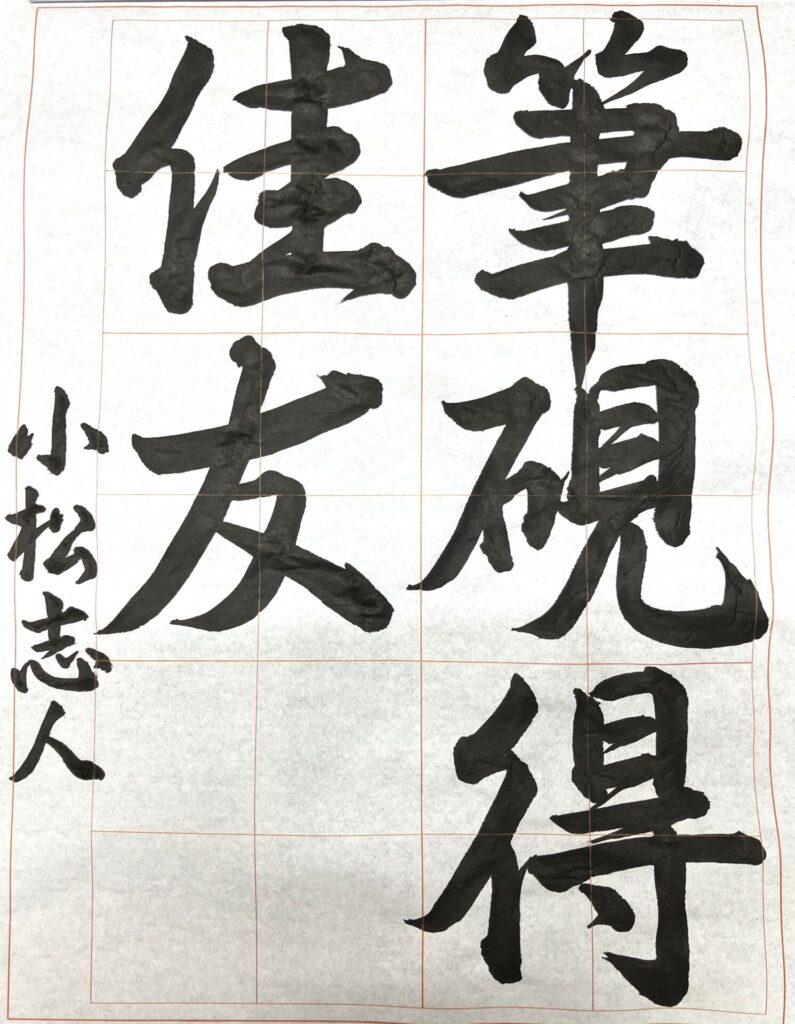 筆硯得
佳友
小松志人